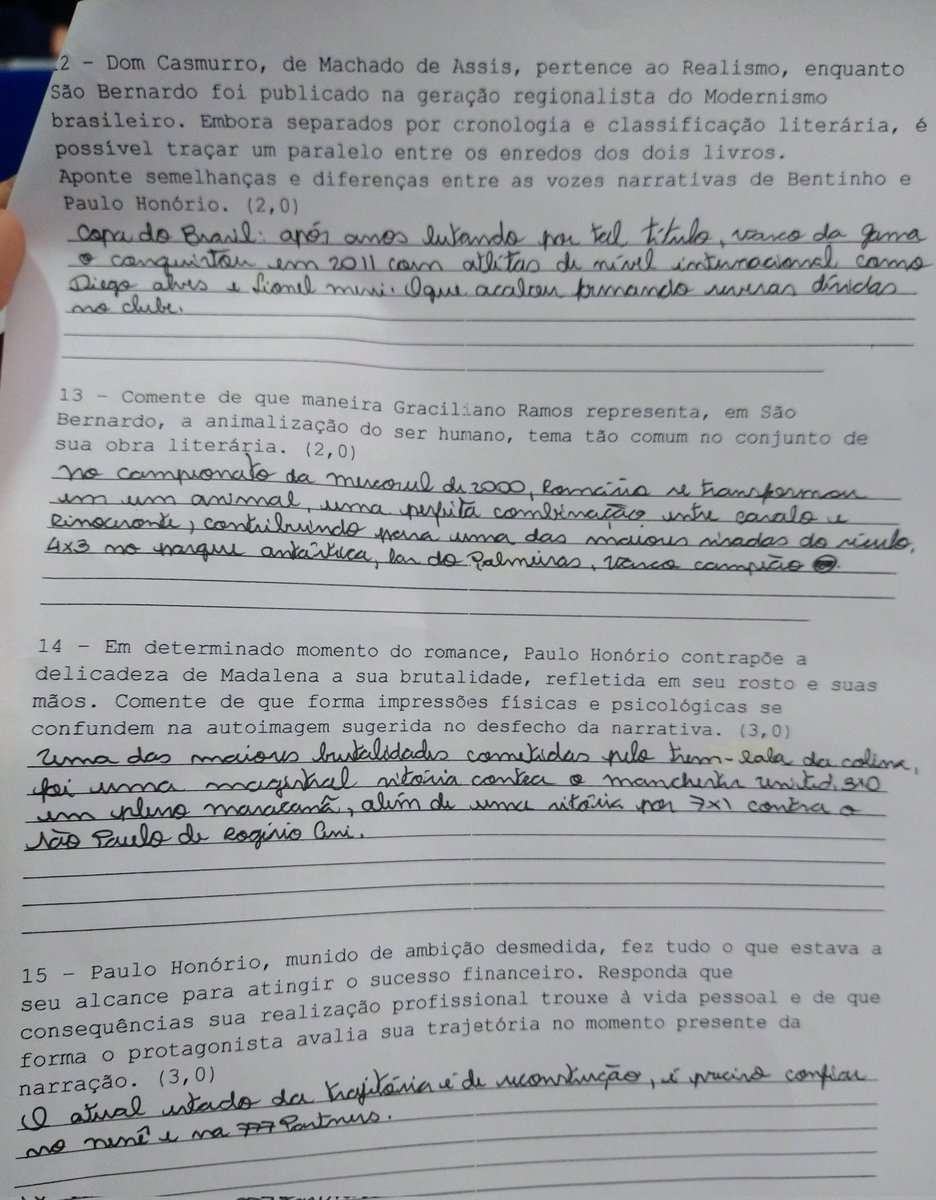 2 - Dom Casmurro, de Machado de Assis, pertence ao Realismo, enquanto
São Bernardo foi publicado na geração regionalista do Modernismo
brasileiro. Embora separados por cronologia e classificação literária, é
possível traçar um paralelo entre os enredos dos dois livros.
Aponte semelhanças e diferenças entre as vozes narrativas de Bentinho e
Paulo Honório. (2,0)
Copa do Brasil: após anos lutando por tal título, vasco da gama
o conquistou em 2011 com atletas de nível internacional como
Diego alves e Lionel messi. O que acabou formando diversas dívidas
no clube.
13 - Comente de que maneira Graciliano Ramos representa, em São
Bernardo, a animalização do ser humano, tema tão comum no conjunto de
sua obra literária. (2,0)
No campeonato da mercosul de 2000, Romário se transformou
em um animal, uma perfeita combinação entre cavalo e
Rinoceronte, contribuindo para uma das maiores viradas do século,
4x3 no parque antártica, lar do Palmeiras, vasco campeão
14 - Em determinado momento do romance, Paulo Honório contrapõe a
delicadeza de Madalena a sua brutalidade, refletida em seu rosto e suas
mãos. Comente de que forma impressões físicas e psicológicas se
confundem na autoimagem sugerida no desfecho da narrativa. (3,0)
Uma das maiores brutalidades cometidas pelo trem-bala da colina,
foi uma magistral vitória contra o manchester united, 3x0
em pleno maracanã, além de uma vitória por 7x1 contra o
São Paulo de Rogério Ceni.
15 - Paulo Honório, munido de ambição desmedida, fez tudo o que estava a
seu alcance para atingir o sucesso financeiro. Responda que
consequências sua realização profissional trouxe à vida pessoal e de que
forma o protagonista avalia sua trajetória no momento presente da
narração. (3,0)
O atual estado da trajetória é de reconstrução, é preciso confiar
no nenê e na 777 Partners.